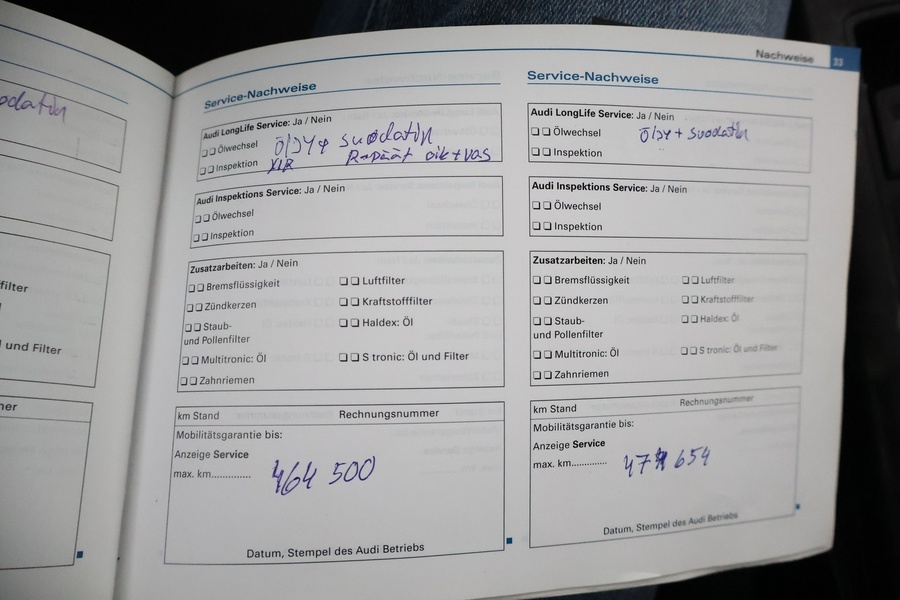 odatin
filter
und Filter
ner
Service-Nachweise
Audi LongLife Service: Ja / Nein
❑ ❑ Ölwechsel
öljy + suodatin
❑ ❑ Inspektion
Räpäät oik + vas
Audi Inspektions Service: Ja / Nein
❑ ❑ Ölwechsel
❑ ❑ Inspektion
Zusatzarbeiten: Ja / Nein
❑ ❑ Bremsflüssigkeit ❑ ❑ Luftfilter
❑ ❑ Zündkerzen ❑ ❑ Kraftstofffilter
❑ ❑ Staub- ❑ ❑ Haldex: Öl
und Pollenfilter
❑ ❑ Multitronic: Öl ❑ ❑ S tronic: Öl und Filter
❑ ❑ Zahnriemen
km Stand Rechnungsnummer
Mobilitätsgarantie bis:
Anzeige Service
max. km..............
464 500
Datum, Stempel des Audi Betriebs
Nachweise 33
Service-Nachweise
Audi LongLife Service: Ja / Nein
❑ ❑ Ölwechsel öljy + suodatin
❑ ❑ Inspektion
Audi Inspektions Service: Ja / Nein
❑ ❑ Ölwechsel
❑ ❑ Inspektion
Zusatzarbeiten: Ja / Nein
❑ ❑ Bremsflüssigkeit ❑ ❑ Luftfilter
❑ ❑ Zündkerzen ❑ ❑ Kraftstofffilter
❑ ❑ Staub- ❑ ❑ Haldex: Öl
und Pollenfilter
❑ ❑ Multitronic: Öl ❑ ❑ S tronic: Öl und Filter
❑ ❑ Zahnriemen
km Stand Rechnungsnummer
Mobilitätsgarantie bis:
Anzeige Service
max. km..............
654
Datum, Stempel des Audi Betriebs